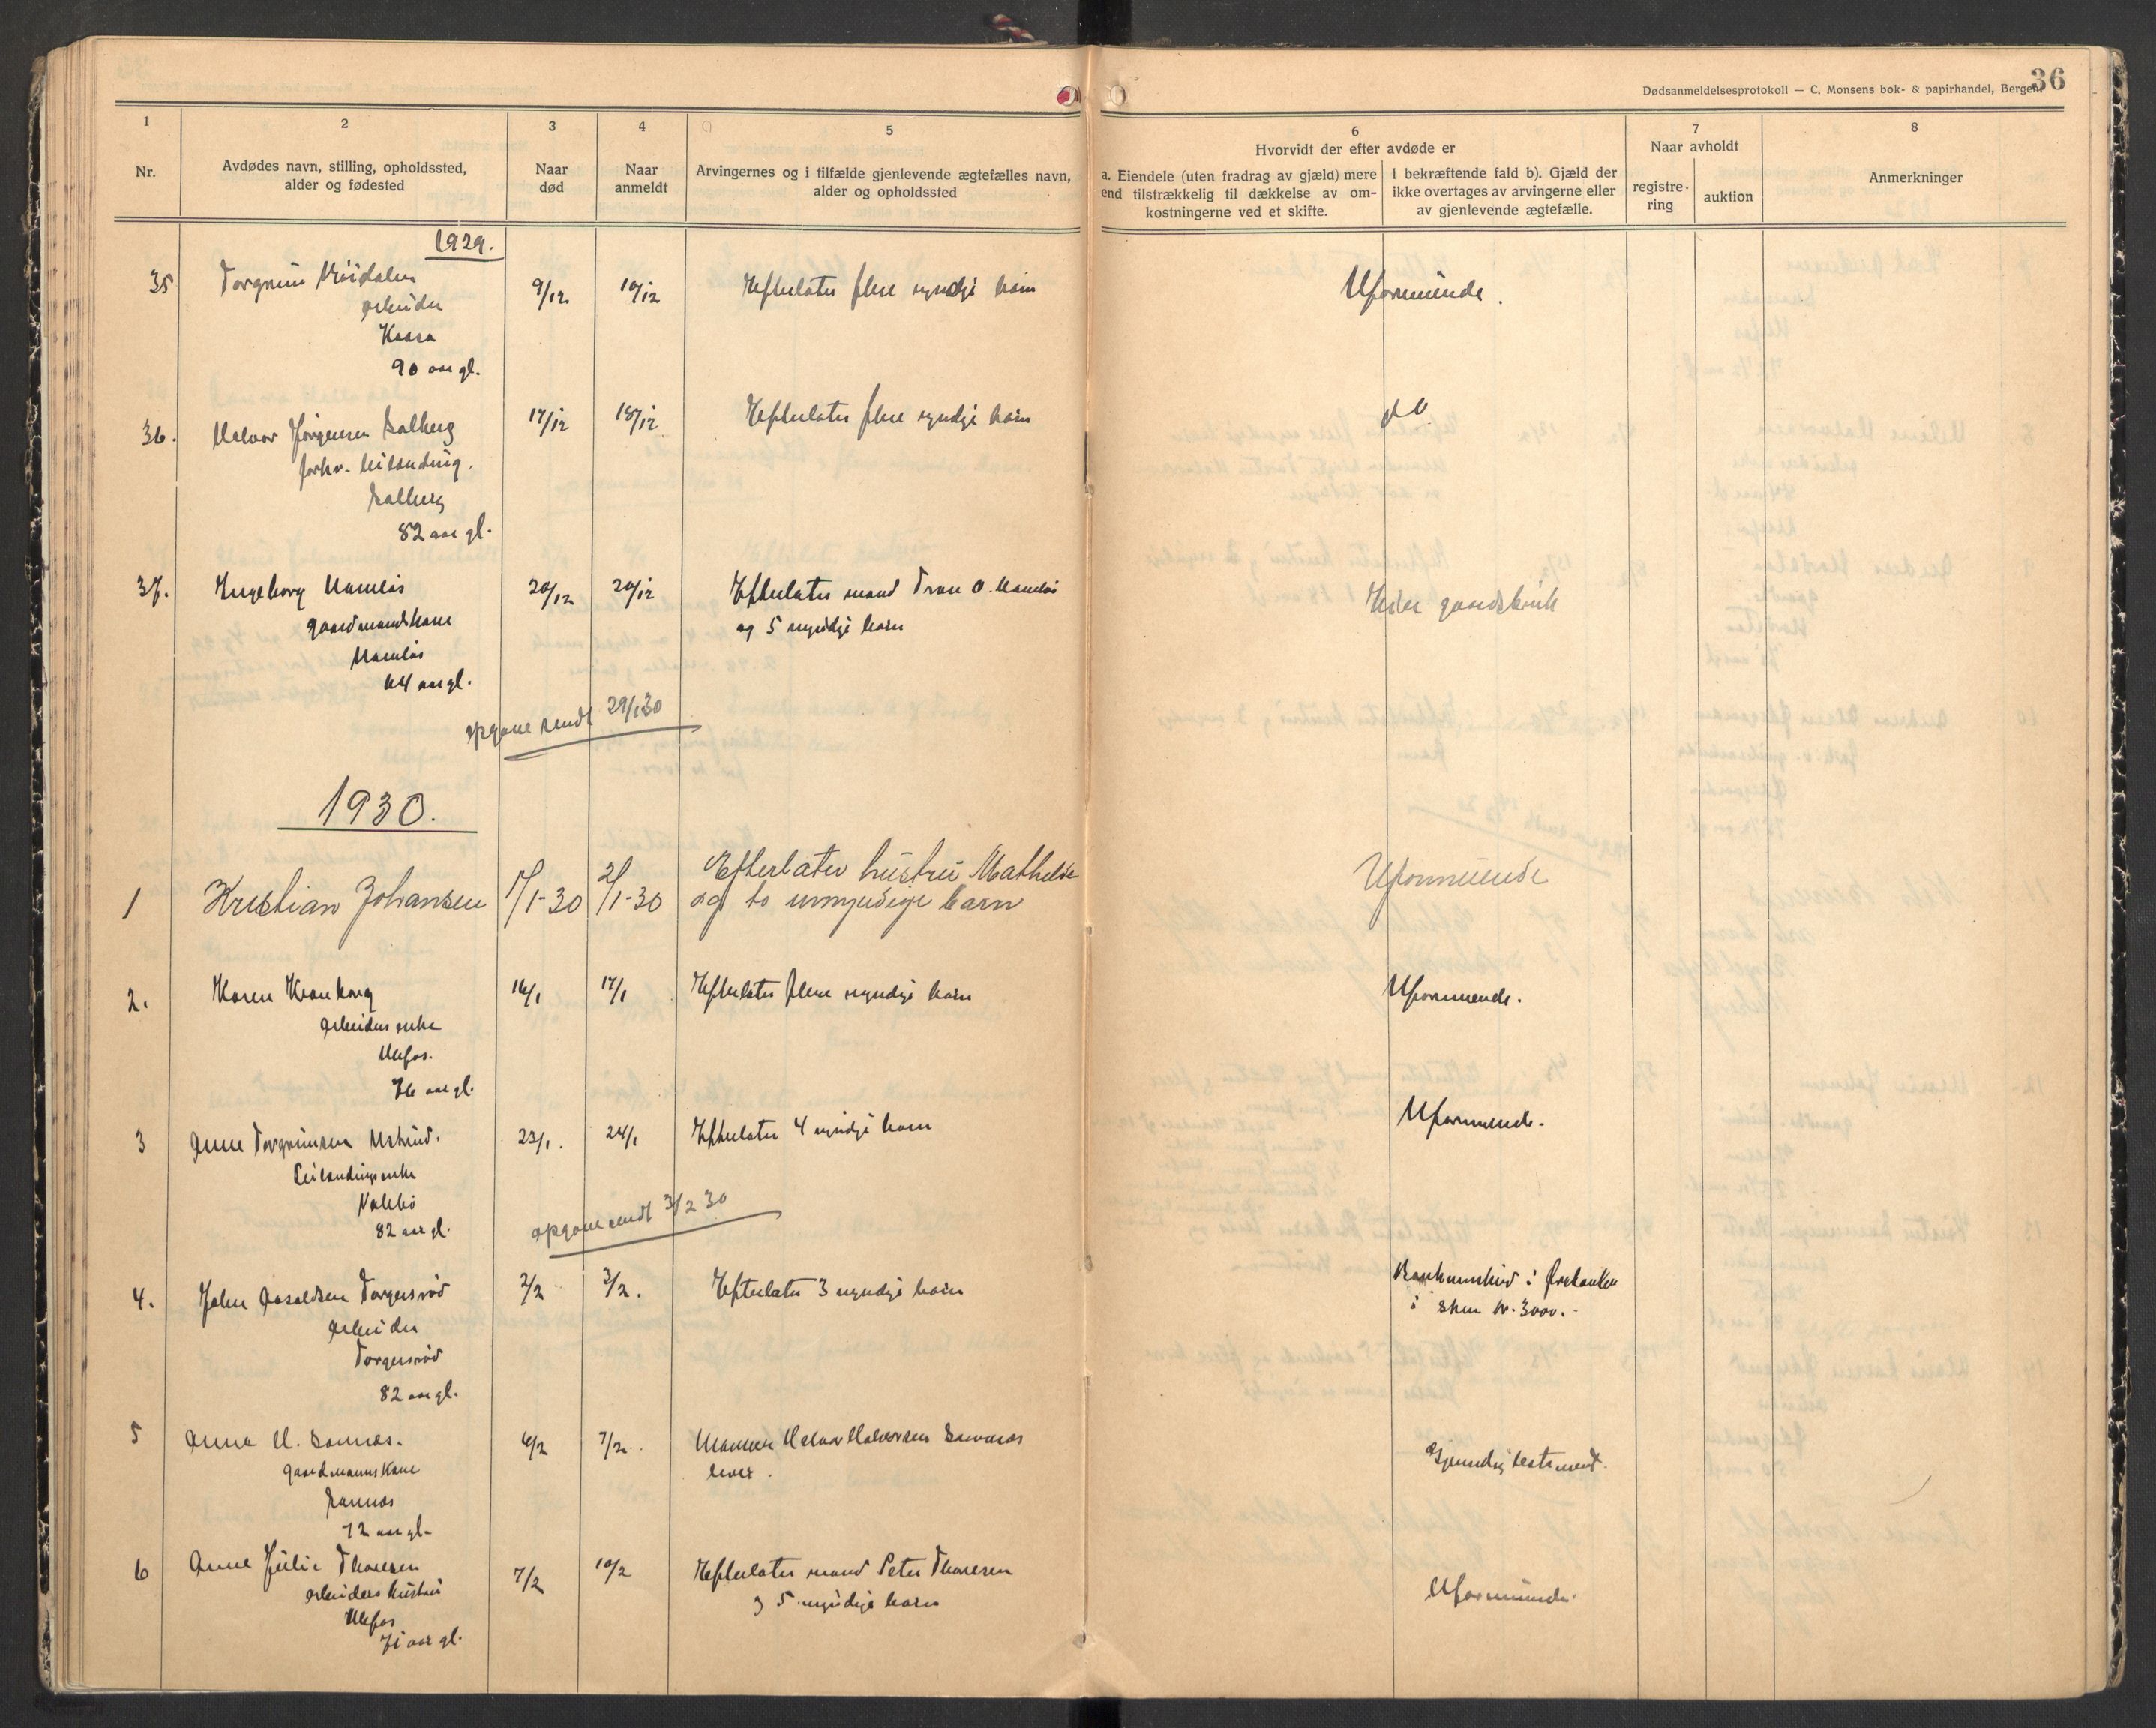 36
Dødsanmeldelsesprotokoll — C. Monsens bok- & papirhandel, Bergen.
1
2
3
4
5
6
7
8
Nr.
Avdødes navn, stilling, opholdssted,
alder og fødested
Naar
død
Naar
anmeldt
Arvingernes og i tilfælde gjenlevende ægtefælles navn,
alder og opholdssted
Hvorvidt der efter avdøde er
a. Eiendele (uten fradrag av gjæld) mere
end tilstrækkelig til dækkelse av om-
kostningerne ved et skifte.
I bekræftende fald b). Gjæld der
ikke overtages av arvingerne eller
av gjenlevende ægtefælle.
Naar avholdt
registre-
ring
auktion
Anmerkninger
1929.
35 Torgrim 9/12 10/12 Efterlater flere myndige barn Uformuende.
arbeider
Kaasa
90 aar gl.
36. Halvor Jørgensen Solberg 17/12 18/12 Efterlater flere myndige barn do
forhv. leilending.
Solberg
82 aar gl.
37. Ingeborg Namløs 20/12 20/12 Efterlater mand O. Namløs
gaardmandskone og 5 myndige barn
Namløs
64 aar gl.
opgave sendt 29/1 30
1930.
1 Kristian Johansen 1/1-30 2/1-30 Efterlater hustru Mathilde Uformuende
og to umyndige barn
2. Karen 16/1 17/1 Efterlater flere myndige barn Uformuende.
arbeiders enke
Ulefos.
76 aar gl.
3 Anne Torgrimsen 23/1. 24/1 Efterlater 4 myndige barn Uformuende.
Leilendings enke
82 aar gl.
opgave sendt 3/2 30
4. John Torgersrød 2/2 3/2. Efterlater 3 myndige barn Bankinnskud i
i Skien kr. 3000.-
arbeider
Torgersrød
82 aar gl.
5 Anna H. Sannes. 6/2 7/2. Manden Halvor Halvorsen Sannes Gjensidig testament.
gaardmanns kone lever.
Sannes
72 aar gl.
6 Anne Julie Thoresen 7/2 10/2 Efterlater mand Peter Thoresen Uformuende.
arbeiders hustru og 5 myndige barn
Ulefos
71 aar gl.